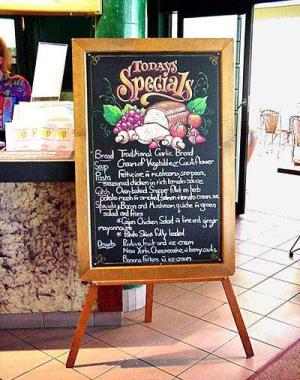 TODAYS
Specials
Bread Traditional Garlic Bread
Soup Cream of Vegetable & Cauliflower
Pasta Fettucine w mushrooms, onion,
seasoned chicken in rich tomato sauce
Catch Oven baked Snapper fillet on herb
potato mash & smoked salmon tomato cream sce
Specialty Bacon and Mushroom quiche & green
salad and fries
* Cajun Chicken Salad & lime and ginger
mayonnaise
* Potato Skins fully loaded
Desserts Pavlova, fruit and ice-cream
New York Cheesecake, w berry coulis
Banana Fritters & ice-cream